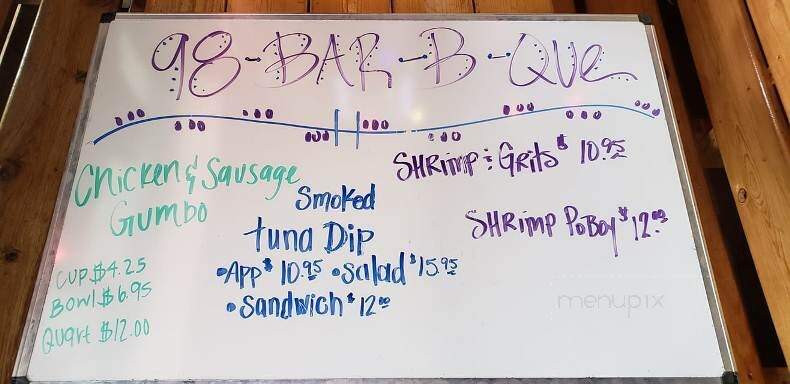 98-BAR-B-QUE
Chicken & Sausage
Gumbo
CUP $4.25
BOWL $6.95
Quart $12.00
Smoked
tuna Dip
•App $10.95 •Salad $15.95
•Sandwich $12.00
SHRimp & GRits $10.95
SHRimp PoBoy $12.00
menupix